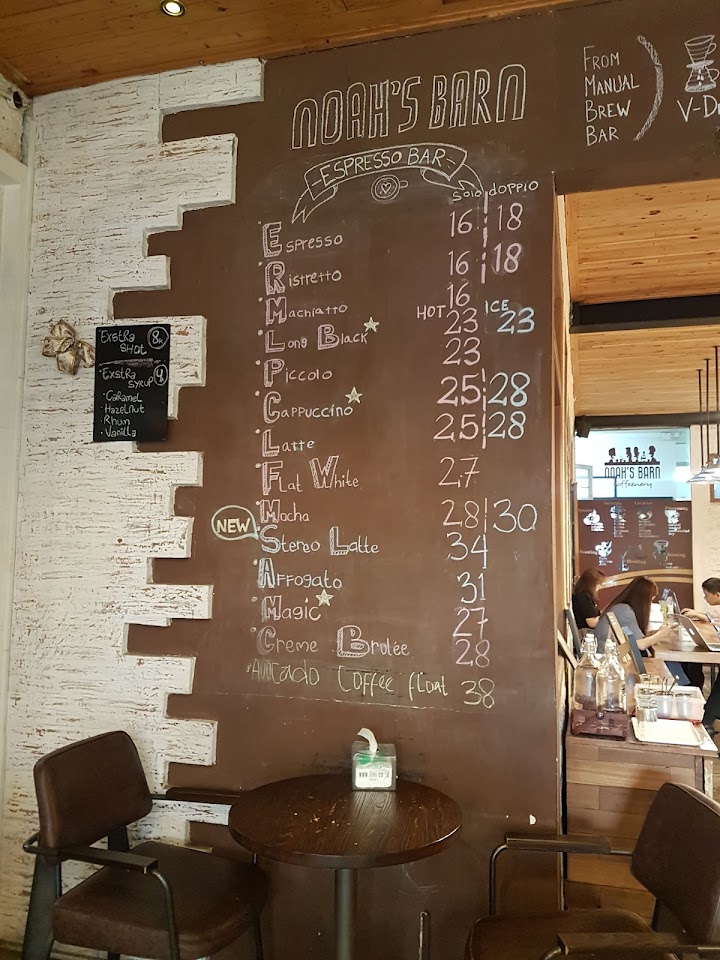 NOAH'S BARN
-ESPRESSO BAR-
FROM
MANUAL
BREW
BAR
solo doppio
Espresso 16 18
Ristretto 16 18
Machiatto 16
HOT ICE
Long Black 23 23
Piccolo 23
Cappuccino 25 28
Latte 25 28
Flat White 27
Mocha 28 30
NEW
Stereo Latte 34
Affogato 31
Magic 27
Creme Brulée 28
Avocado Coffee float 38
Exstra
SHot 8K
Exstra
SYRUP 4K
• CaRamel
• Hazelnut
• Rhum
• Vanilla
NOAH'S BARN